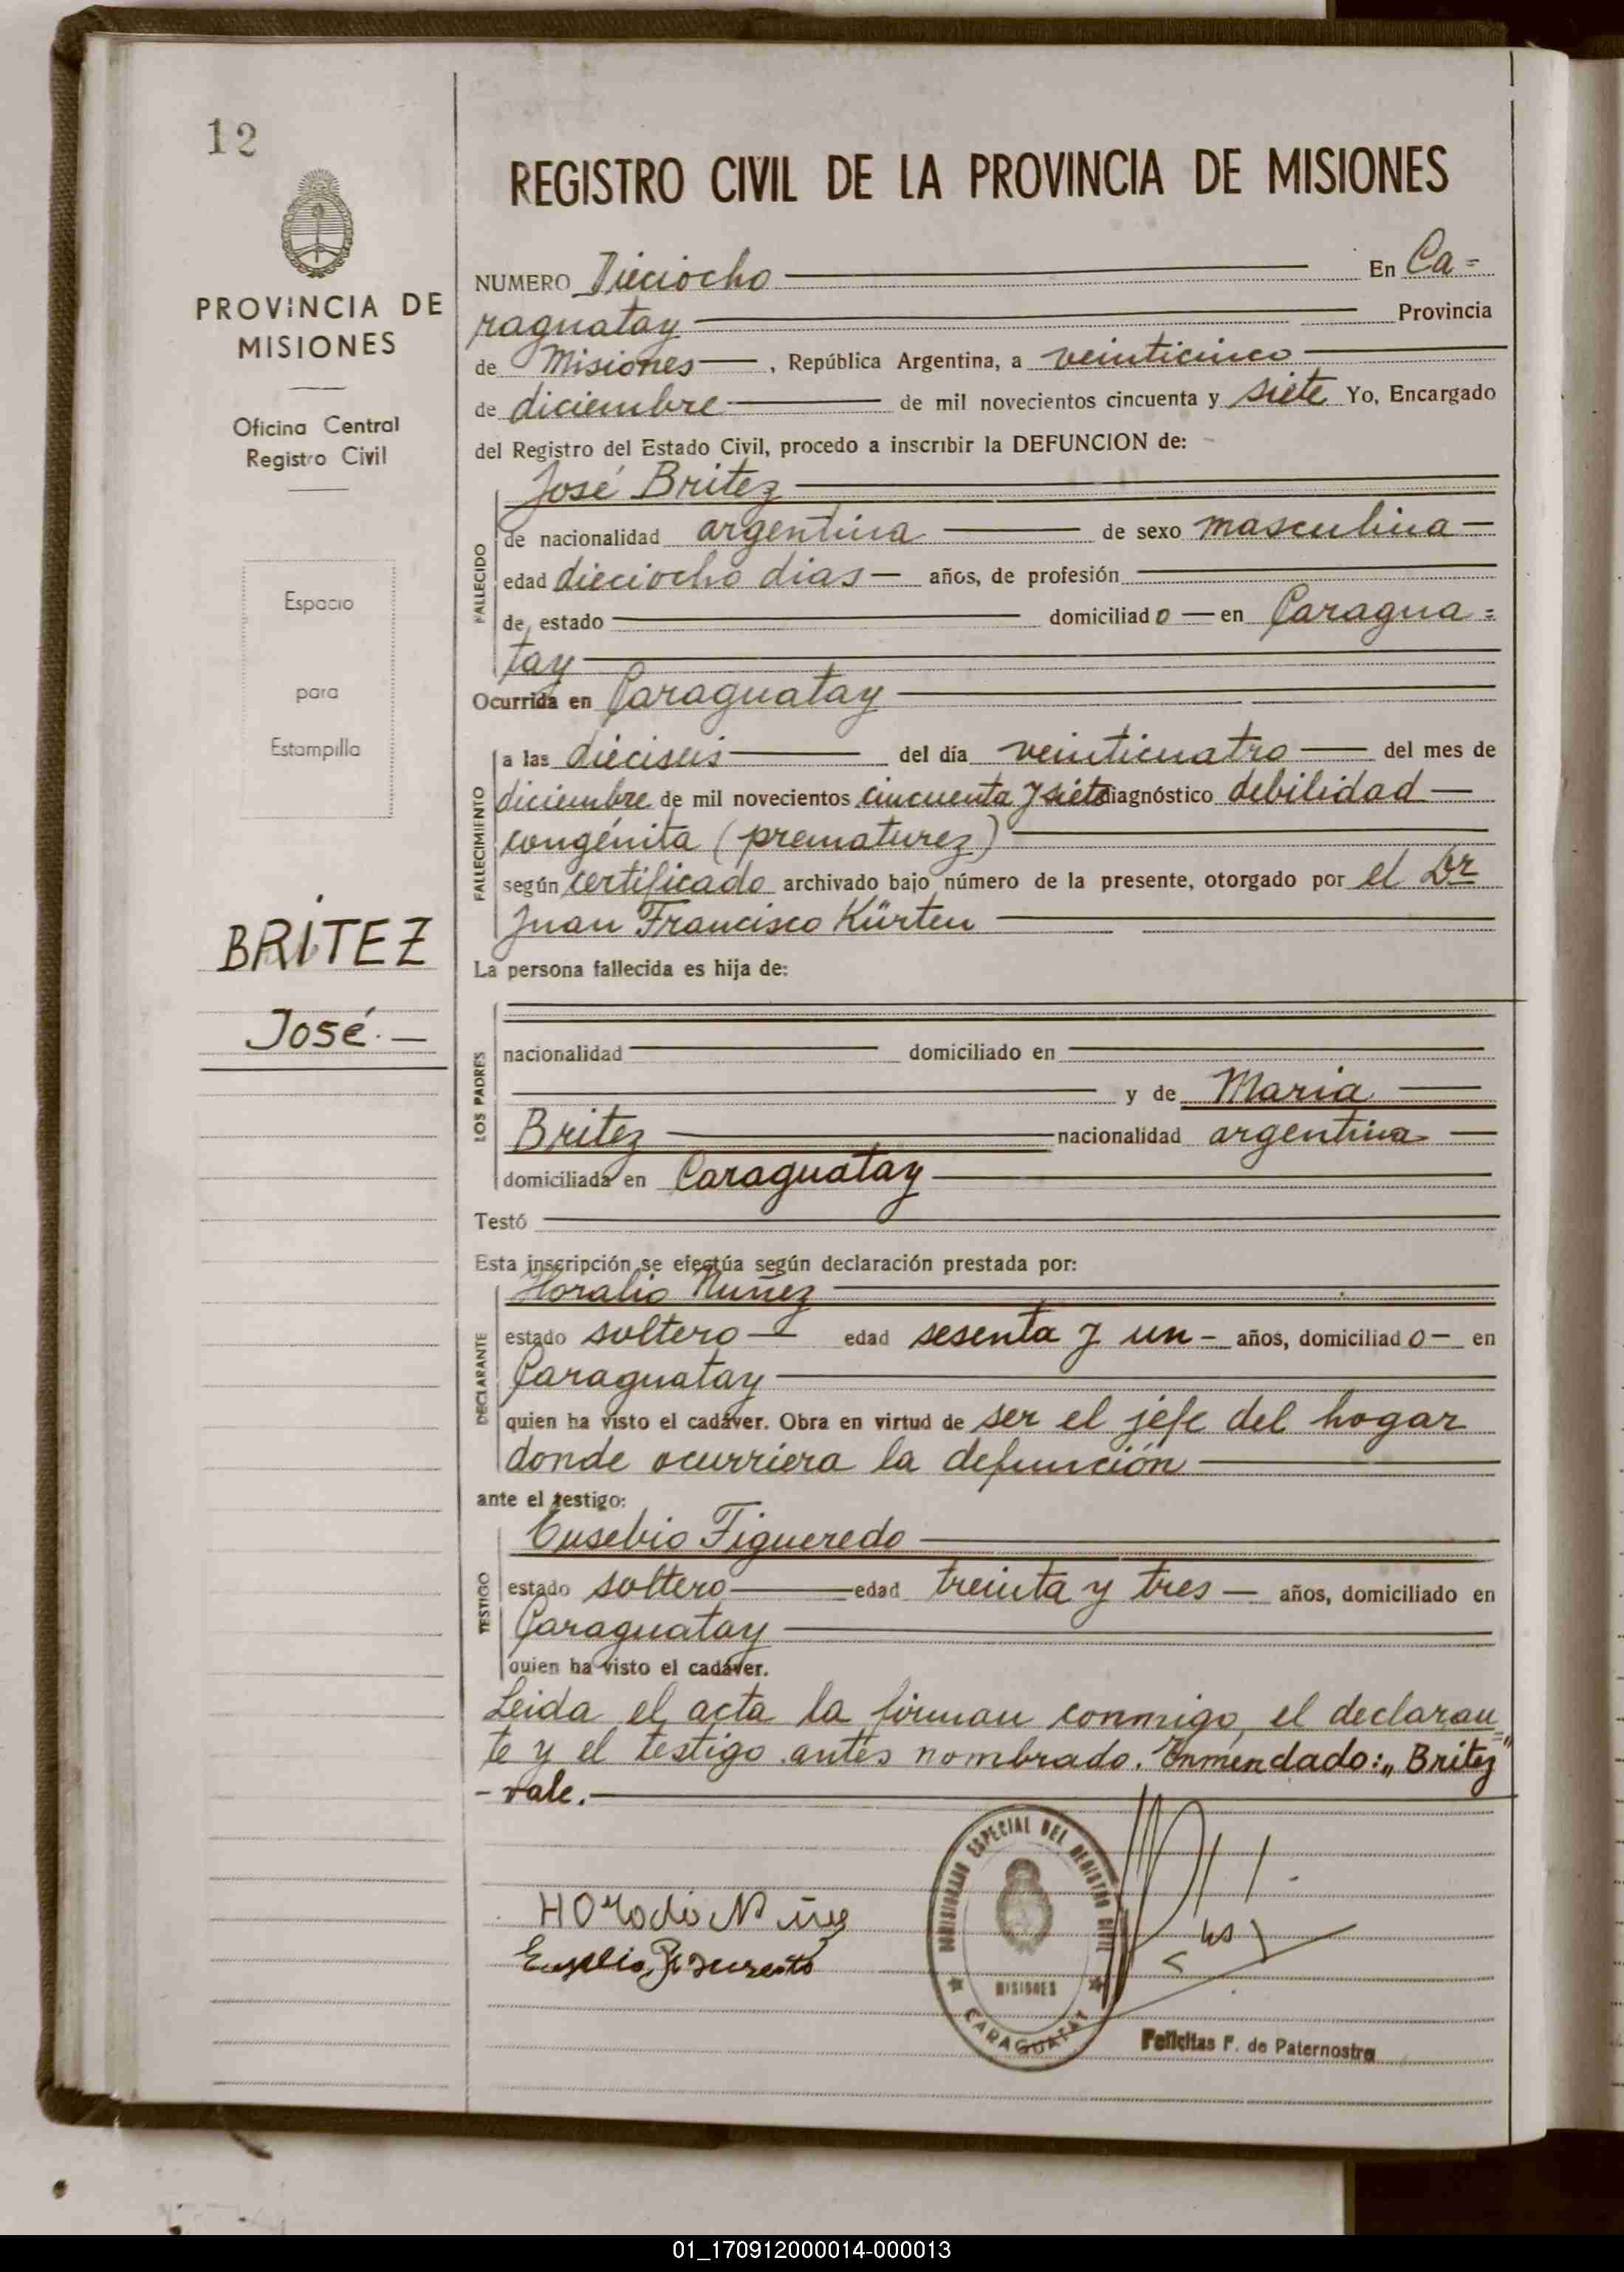 12
PROVINCIA DE
MISIONES
Oficina Central
Registro Civil
Espacio
para
Estampilla
BRITEZ
José.—
REGISTRO CIVIL DE LA PROVINCIA DE MISIONES
NUMERO Dieciocho En Ca=
raguatay Provincia
de Misiones, República Argentina, a veinticinco
de diciembre de mil novecientos cincuenta y siete Yo, Encargado
del Registro del Estado Civil, procedo a inscribir la DEFUNCION de:
FALLECIDO
José Britez
de nacionalidad argentina de sexo masculina
edad dieciocho dias años, de profesión
de estado domiciliado en Caragua=
tay
Ocurrida en Caraguatay
FALLECIMIENTO
a las dieciseis del día veinticuatro del mes de
diciembre de mil novecientos cincuenta y siete diagnóstico debilidad
congénita (prematurez)
según certificado archivado bajo número de la presente, otorgado por el Dr
Juan Francisco Kürten
La persona fallecida es hija de:
LOS PADRES
nacionalidad domiciliado en
y de Maria
Britez nacionalidad argentina
domiciliada en Caraguatay
Testó
Esta inscripción se efectúa según declaración prestada por:
DECLARANTE
Horalio Nuñez
estado soltero edad sesenta y un años, domiciliado en
Caraguatay
quien ha visto el cadáver. Obra en virtud de ser el jefe del hogar
donde ocurriera la defunción
ante el testigo:
TESTIGO
Eusebio Figueredo
estado soltero edad treinta y tres años, domiciliado en
Caraguatay
quien ha visto el cadáver.
Leida el acta la firman conmigo, el declaran=
te y el testigo antes nombrado. Enmendado: „Britez"
- vale.
ESPECIAL DEL REGISTRO CIVIL
MISIONES
CARAGUATAY
Felicitas F. de Paternostro
01_170912000014-000013